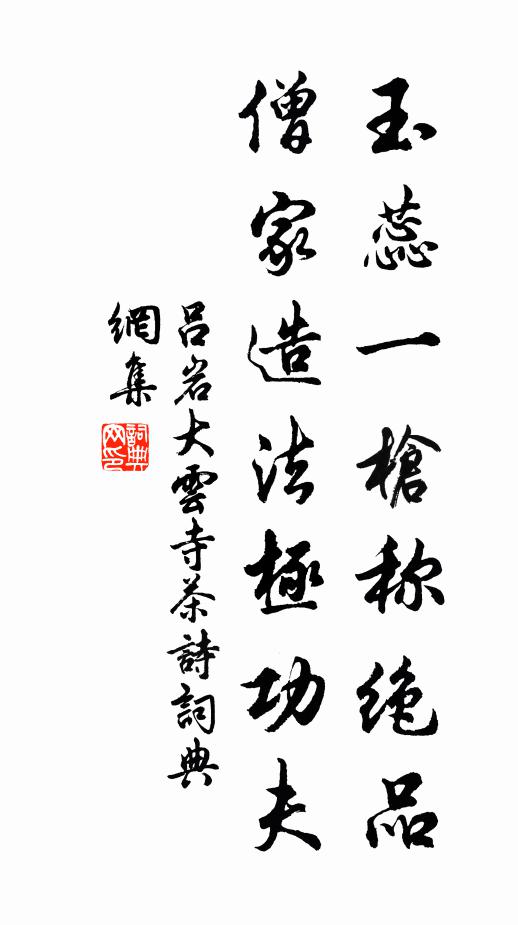 玉蕊一槍称绝品
僧家造法極功夫
吕岩大雲寺茶詩詞典
網集
詞典网印